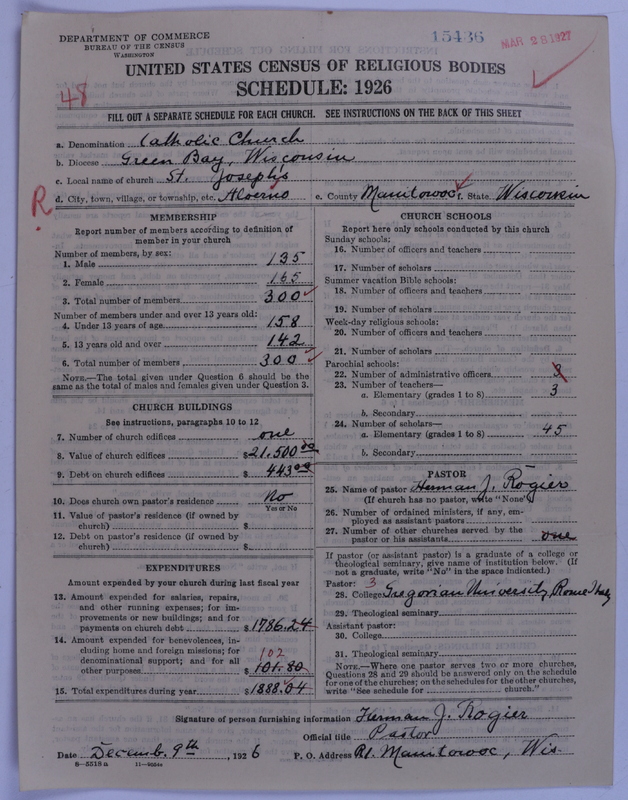 DEPARTMENT OF COMMERCE
BUREAU OF THE CENSUS
WASHINGTON
15436
MAR 28 1927
UNITED STATES CENSUS OF RELIGIOUS BODIES
SCHEDULE: 1926
48
FILL OUT A SEPARATE SCHEDULE FOR EACH CHURCH. SEE INSTRUCTIONS ON THE BACK OF THIS SHEET
a. Denomination Catholic Church
b. Diocese Green Bay, Wisconsin
c. Local name of church St. Joseph's
R. d. City, town, village, or township, etc. Alverno e. County Manitowoc f. State Wisconsin
MEMBERSHIP
Report number of members according to definition of
member in your church
Number of members, by sex:
1. Male 135
2. Female 165
3. Total number of members 300
Number of members under and over 13 years old:
4. Under 13 years of age 158
5. 13 years old and over 142
6. Total number of members 300
NOTE.—The total given under Question 6 should be the
same as the total of males and females given under Question 3.
CHURCH BUILDINGS
See instructions, paragraphs 10 to 12
7. Number of church edifices one
8. Value of church edifices $21,500 00
9. Debt on church edifices $443 00
10. Does church own pastor's residence No
Yes or No
11. Value of pastor's residence (if owned by
church) $
12. Debt on pastor's residence (if owned by
church) $
EXPENDITURES
Amount expended by your church during last fiscal year
13. Amount expended for salaries, repairs,
and other running expenses; for im-
provements or new buildings; and for
payments on church debt $1786.24
14. Amount expended for benevolences, in-
cluding home and foreign missions; for
denominational support; and for all
102
other purposes $101.80
15. Total expenditures during year $1888.04
CHURCH SCHOOLS
Report here only schools conducted by this church
Sunday schools:
16. Number of officers and teachers
17. Number of scholars
Summer vacation Bible schools:
18. Number of officers and teachers
19. Number of scholars
Week-day religious schools:
20. Number of officers and teachers
21. Number of scholars
Parochial schools:
22. Number of administrative officers 3
23. Number of teachers—
a. Elementary (grades 1 to 8) 3
b. Secondary
24. Number of scholars—
a. Elementary (grades 1 to 8) 45
b. Secondary
PASTOR
25. Name of pastor Herman J. Rogier
(If church has no pastor, write "None")
26. Number of ordained ministers, if any, em-
ployed as assistant pastors
27. Number of other churches served by the
pastor or his assistants one
If pastor (or assistant pastor) is a graduate of a college or
theological seminary, give name of institution below. (If
not a graduate, write "No" in the space indicated.)
Pastor: 3
28. College Gregorian University, Rome Italy
29. Theological seminary
Assistant pastor:
30. College
31. Theological seminary
NOTE.—Where one pastor serves two or more churches,
Questions 28 and 29 should be answered only on the schedule
for one of the churches; on the schedules for the other churches,
write "See schedule for church."
Signature of person furnishing information Herman J. Rogier
Official title Pastor
Date Decemb. 9th, 1926 P. O. Address R1. Manitowoc, Wis.
8—5518 a